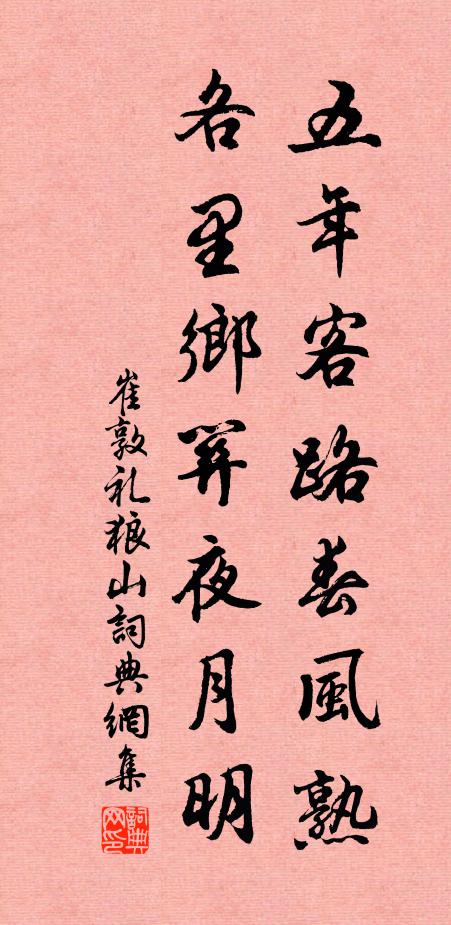 五年客路春風熟
各里鄉笄夜月明
崔敦礼狼山詞典網集
詞典网印